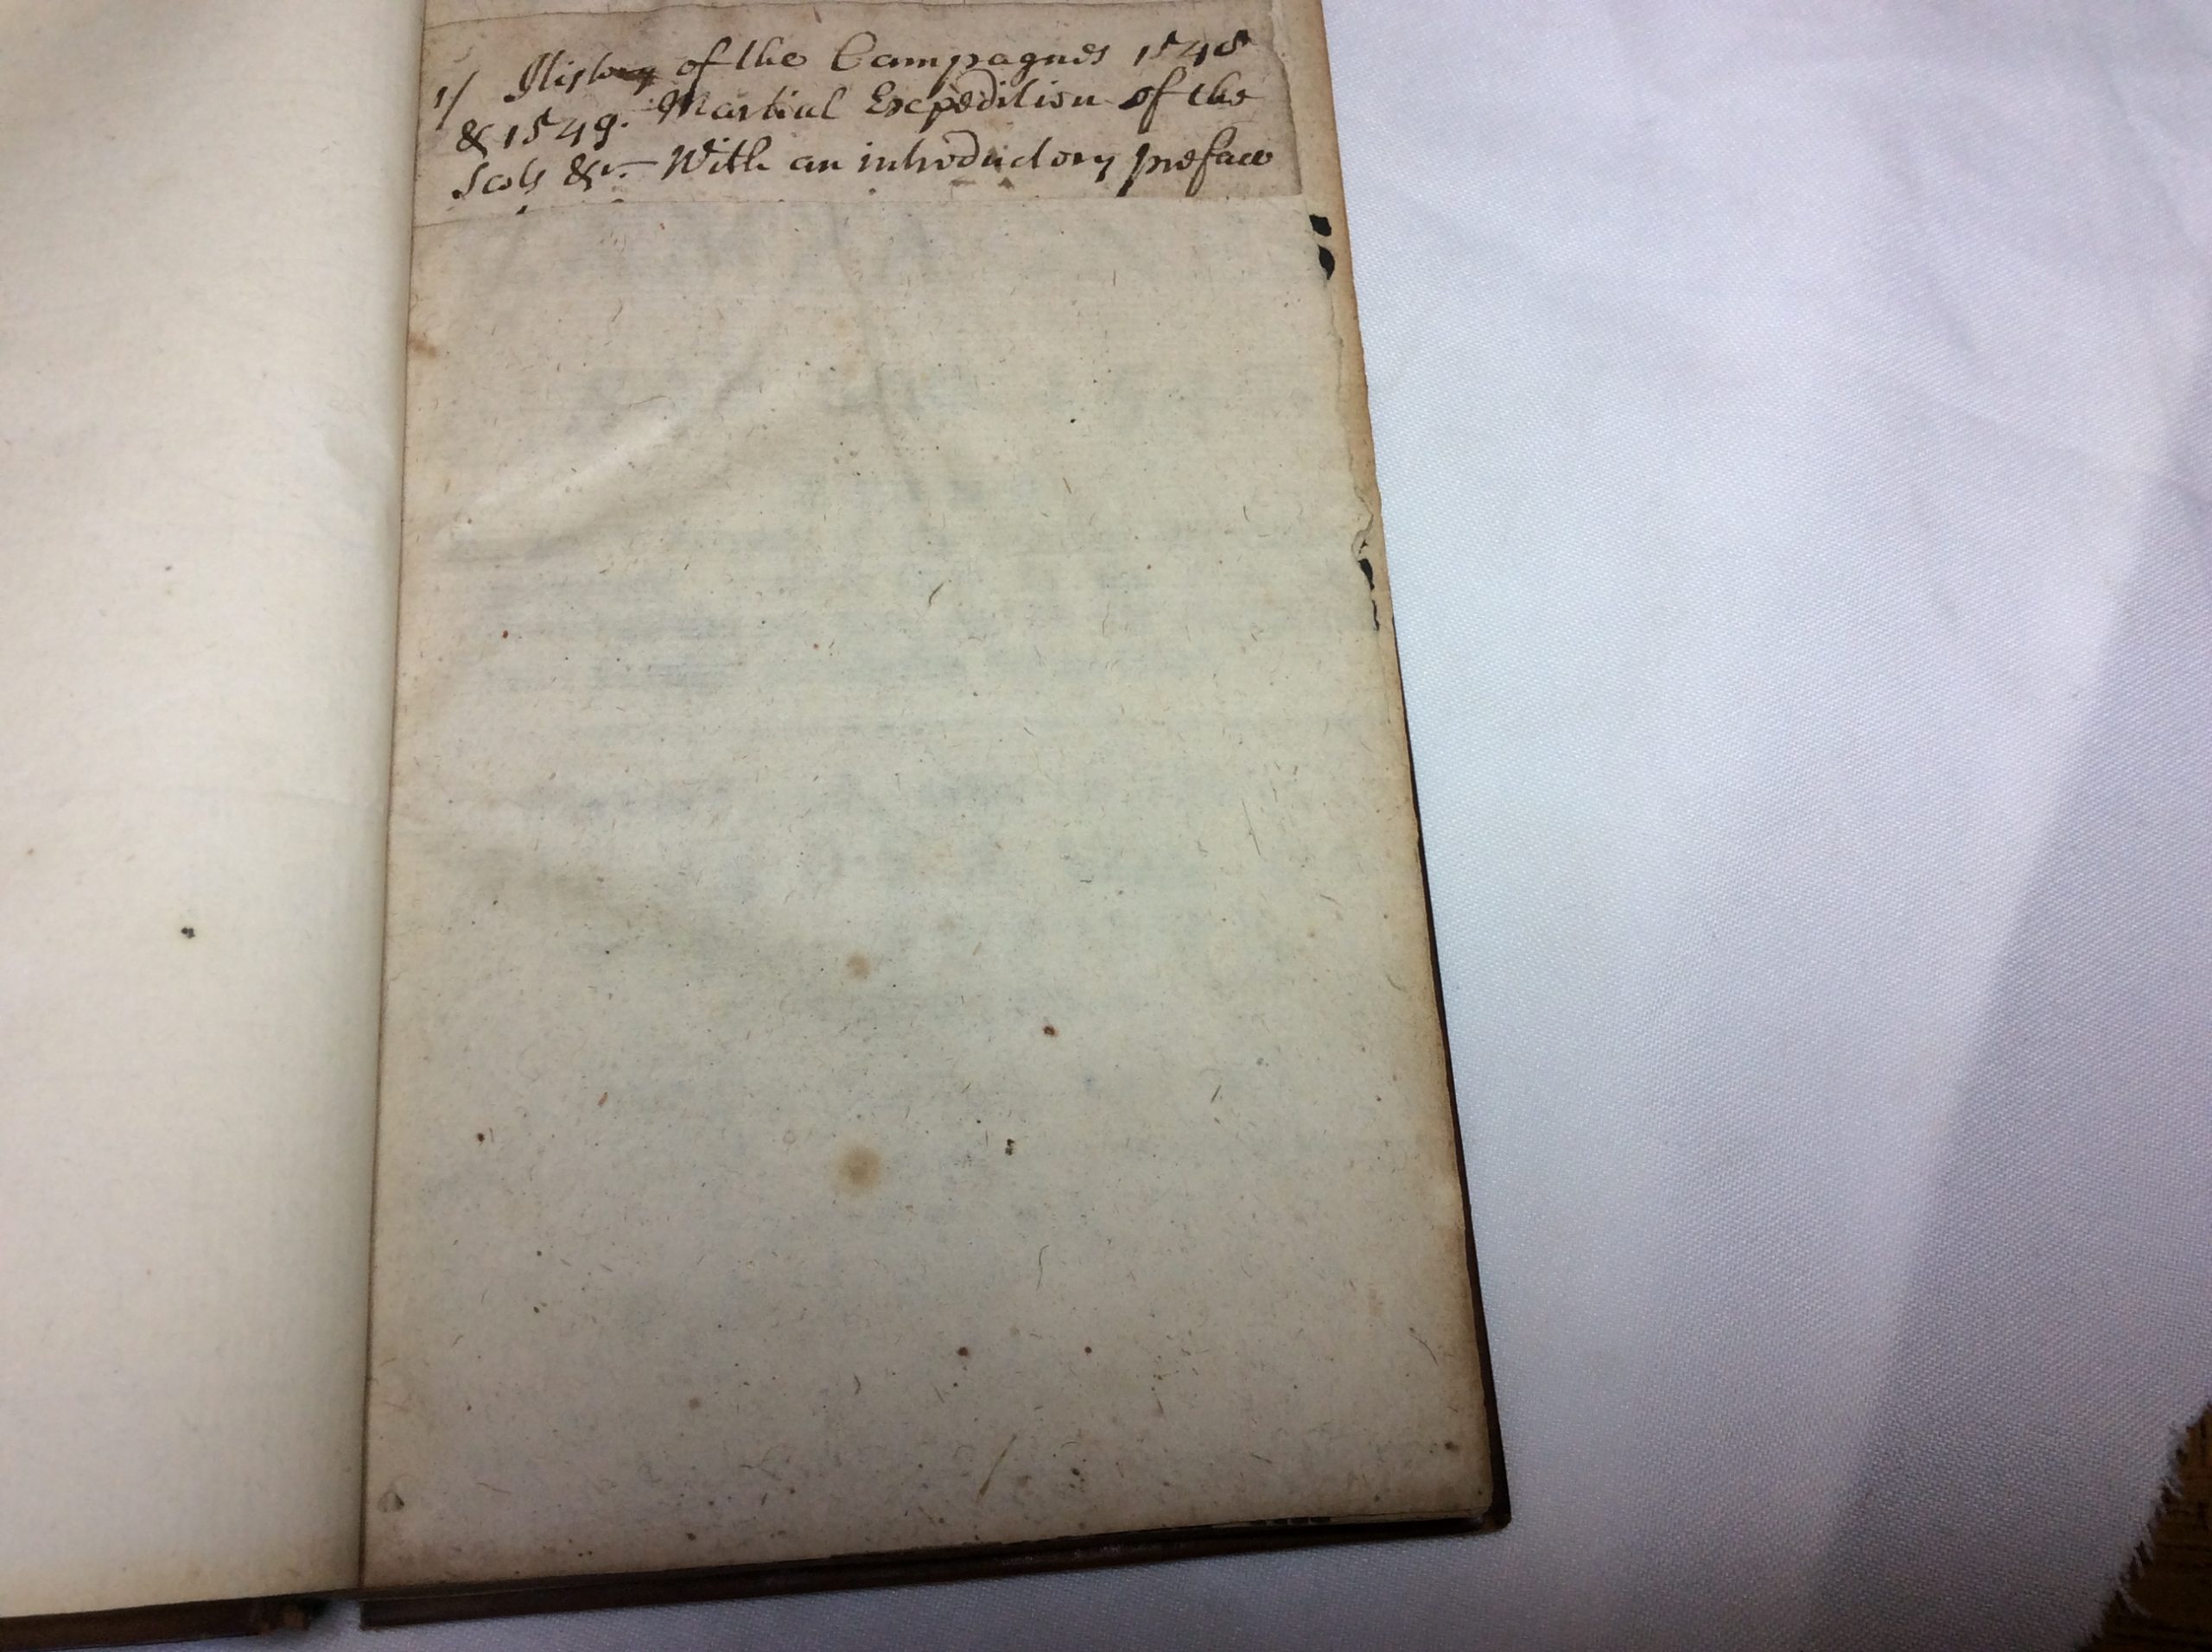 1/ History of the Campagnes 1548
& 1549. Martial Expedition of the
Scots &c. — With an introductory preface